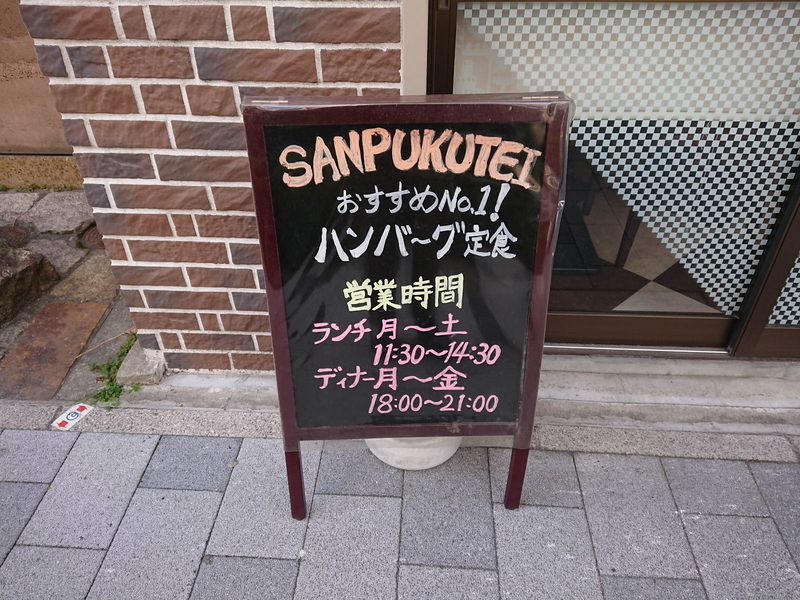 SANPUKUTEI
おすすめNo.1!
ハンバ〜グ定食
営業時間
ランチ月〜土
11:30〜14:30
ディナー月〜金
18:00〜21:00